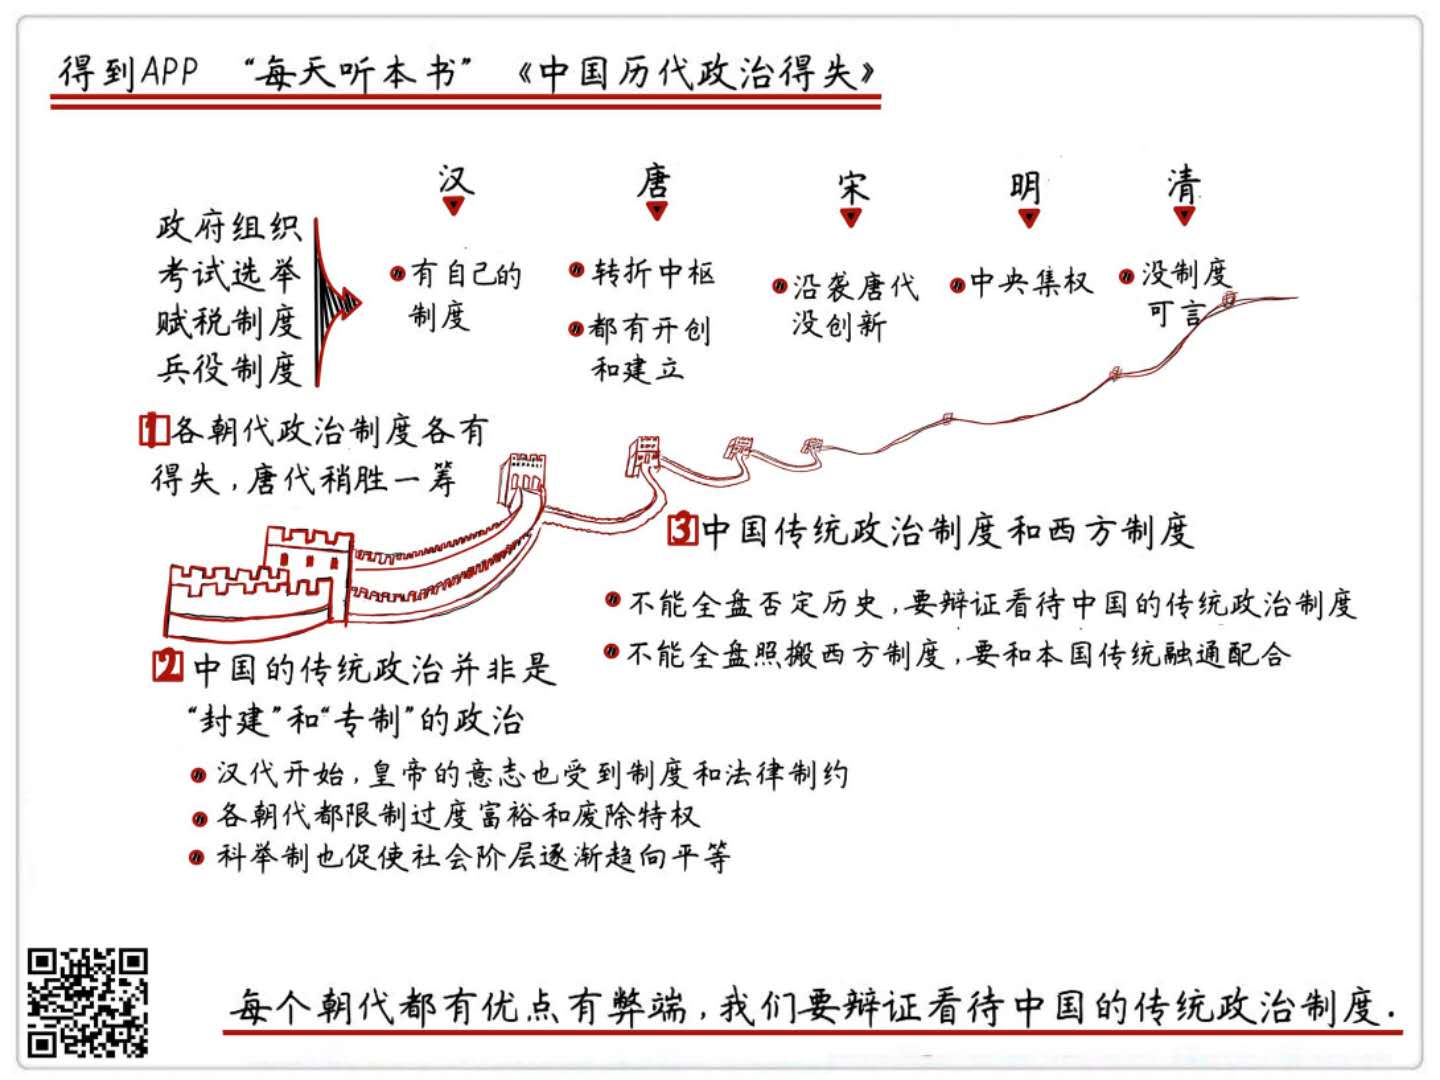 得到APP “每天听本书” 《中国历代政治得失》
汉 唐 宋 明 清
政府组织
考试选举
赋税制度
兵役制度
有自己的
制度
转折中枢
都有开创
和建立
沿袭唐代
没创新
中央集权
没制度
可言
1 各朝代政治制度各有
得失,唐代稍胜一筹
2 中国的传统政治并非是
“封建”和“专制”的政治
汉代开始,皇帝的意志也受到制度和法律制约
各朝代都限制过度富裕和废除特权
科举制也促使社会阶层逐渐趋向平等
3 中国传统政治制度和西方制度
不能全盘否定历史,要辩证看待中国的传统政治制度
不能全盘照搬西方制度,要和本国传统融通配合
每个朝代都有优点有弊端,我们要辩证看待中国的传统政治制度.